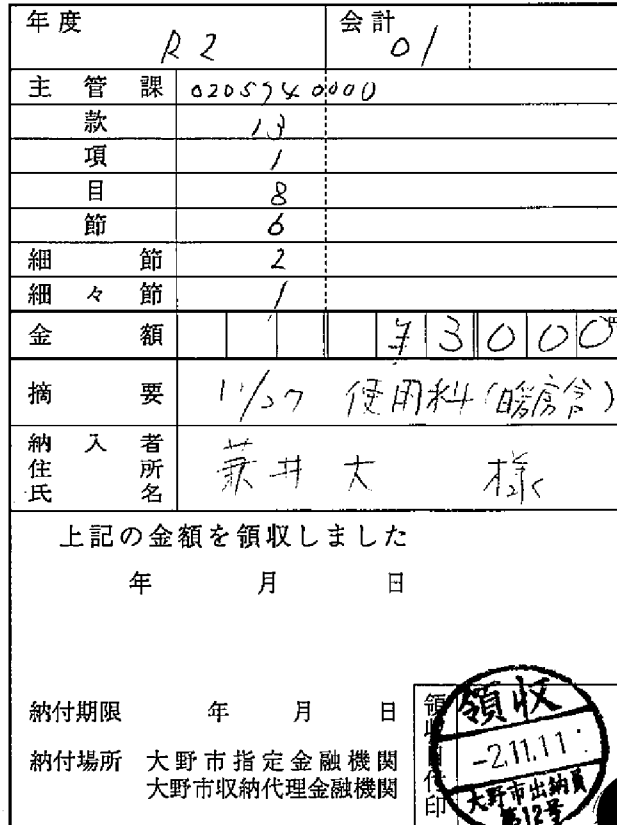 年度 R2 会計 01
主管課 0205940000
款 13
項 1
目 8
節 6
細節 2
細々節 1
金額 ¥3000円
摘要 11/27 使用料(暖房含)
納入者住所氏名 井 大 様
上記の金額を領収しました
年 月 日
納付期限 年 月 日
納付場所 大野市指定金融機関
大野市収納代理金融機関
領収
-2.11.11
大野市出納員
第12号